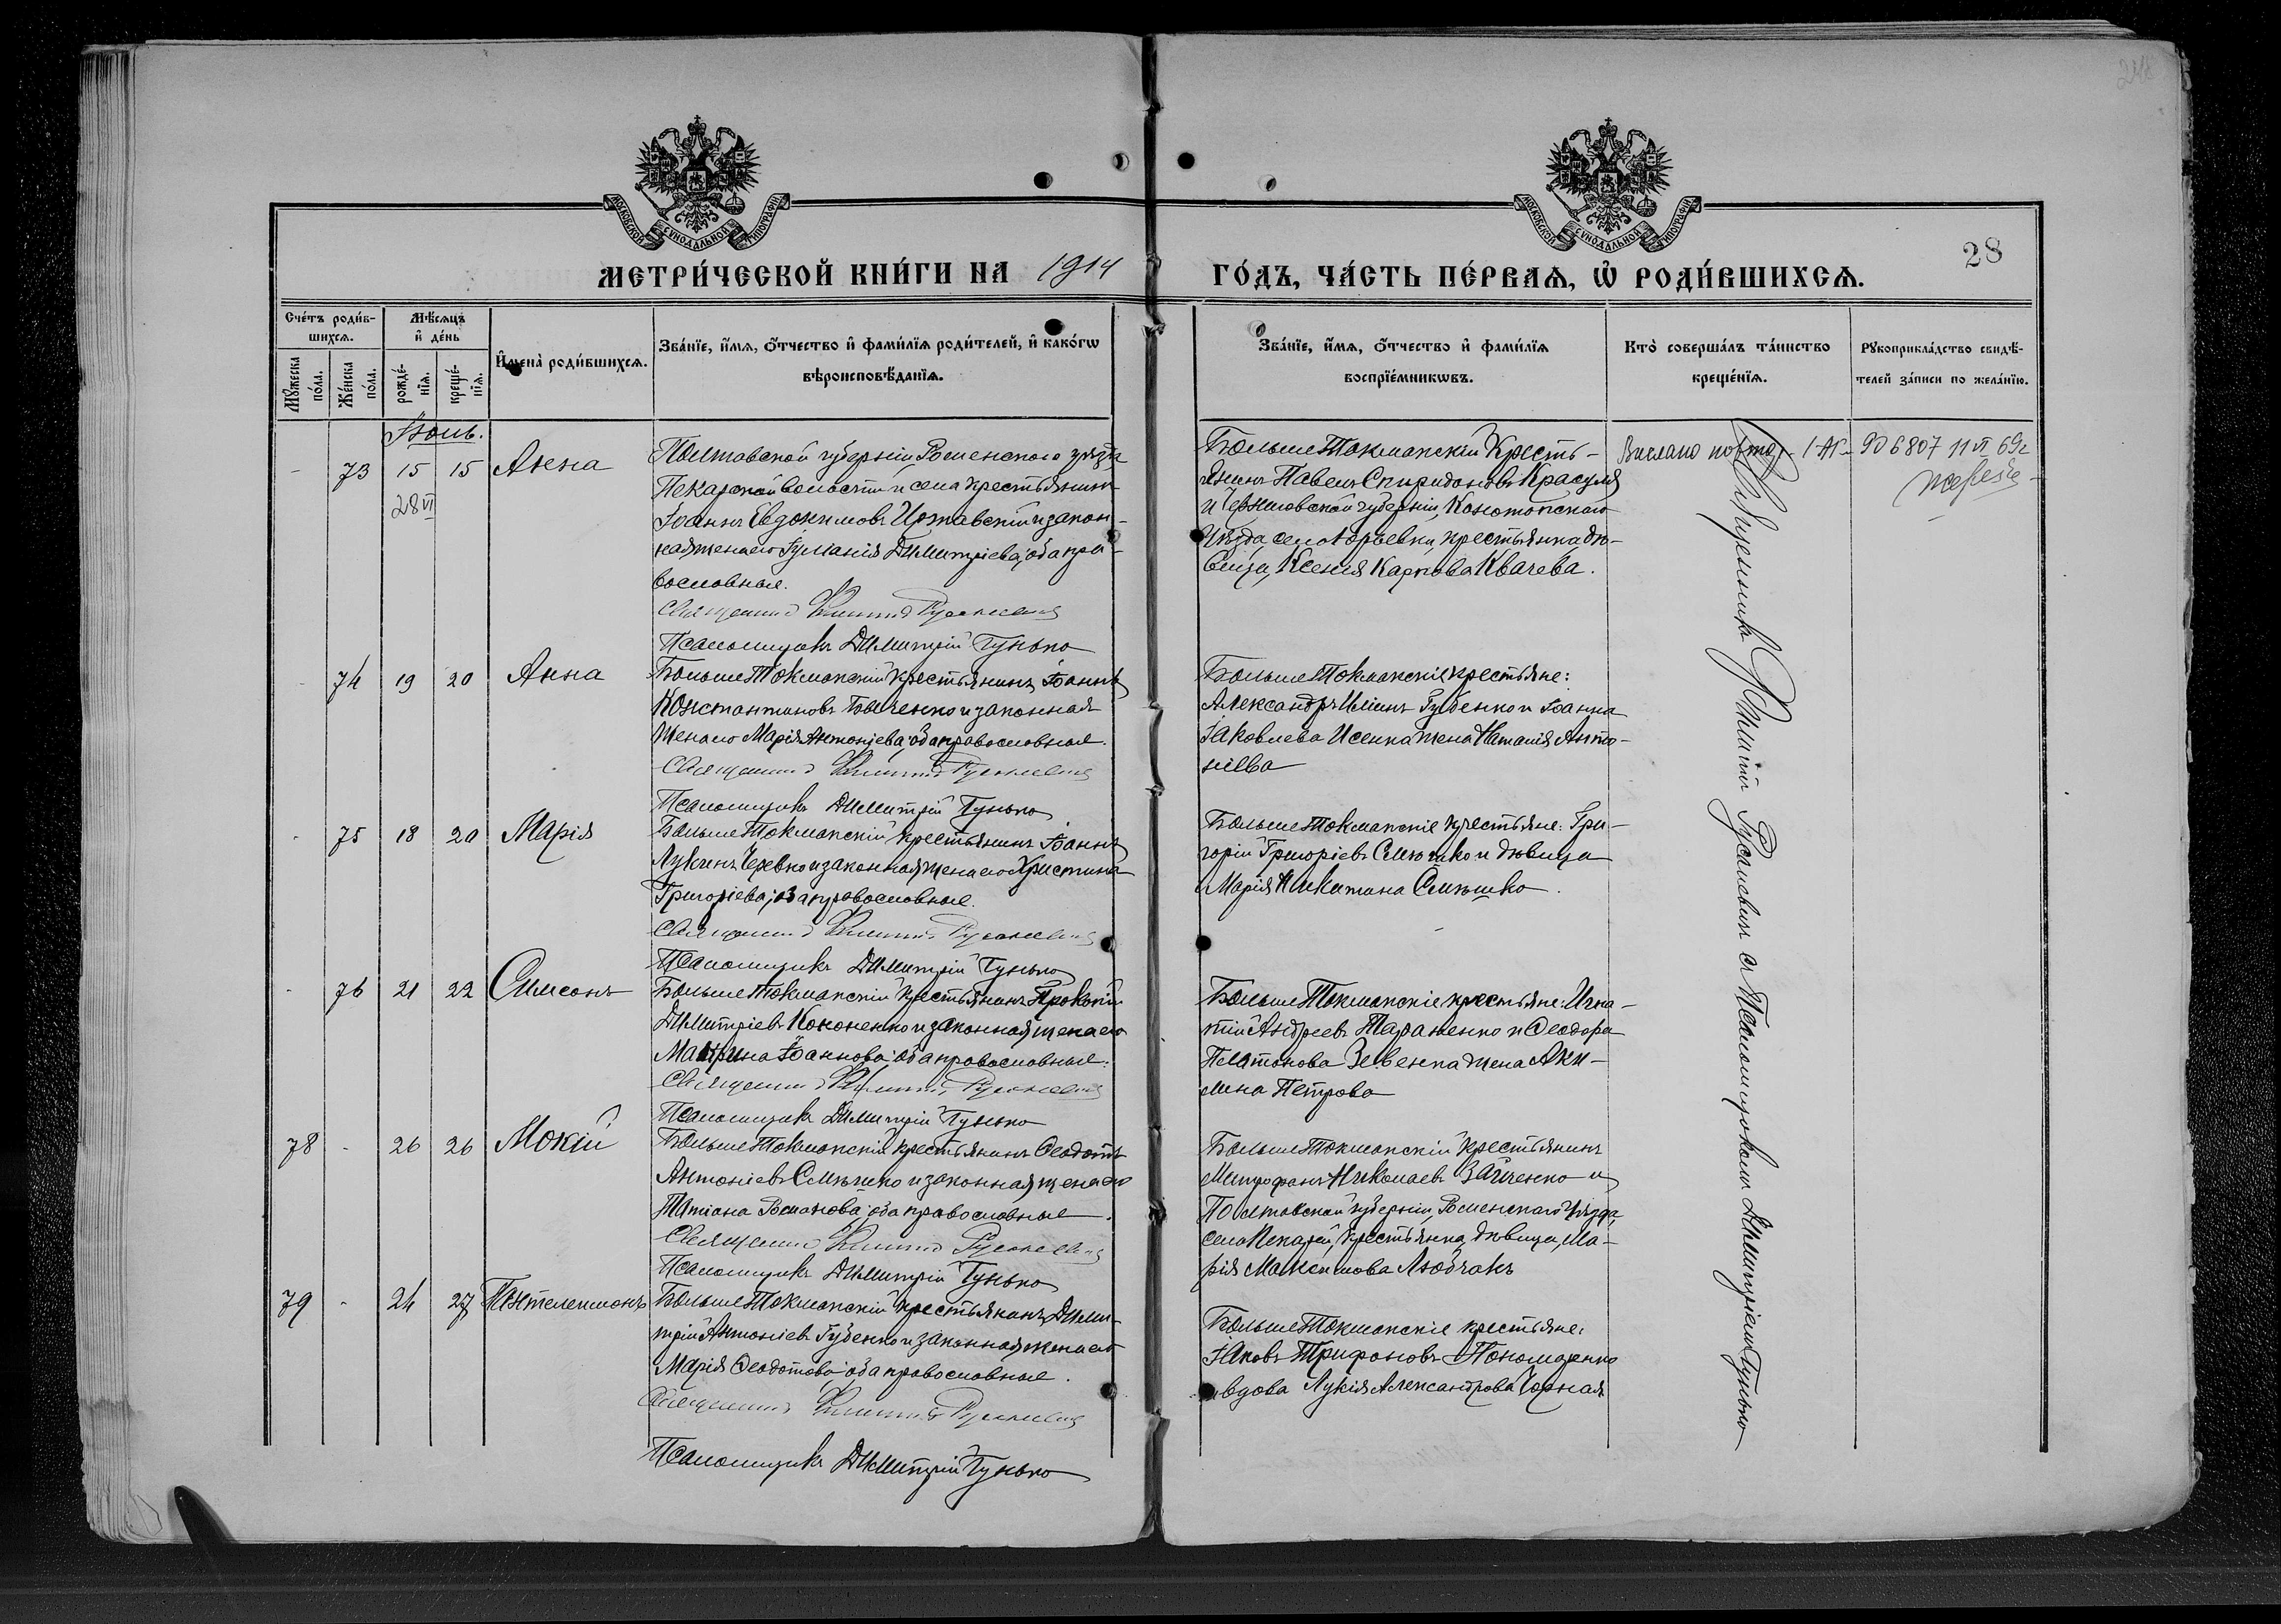 28
МОСКОВСКОЙ СѴНОДАЛЬНОЙ ТИПОГРАФІИ
МОСКОВСКОЙ СѴНОДАЛЬНОЙ ТИПОГРАФІИ
МЕТРИ́ЧЕСКОЙ КНИ́ГИ НА 1914 ГО́ДЪ, ЧА́СТЬ ПЕ́РВАѦ, Ѡ҆ РОДИ́ВШИХСѦ.
Сче́тъ роди́в-
шихсѧ.
Мꙋ́жеска по́ла.
Же́нска по́ла.
Мѣ́сѧцъ
и҆ де́нь
рожде́-
нїѧ.
креще́-
нїѧ.
И҆мена̀ роди́вшихсѧ.
Зва́нїе, и҆́мѧ, ѻ҆́тчество и҆ фами́лїѧ роди́телей, и҆ како́гѡ
вѣроисповѣ́данїѧ.
Зва́нїе, и҆́мѧ, ѻ҆́тчество и҆ фами́лїѧ
воспрїе́мникѡвъ.
Кто̀ соверша́лъ та́инство
креще́нїѧ.
Рꙋкоприкла́дство свидѣ́-
телей за́писи по жела́нїю.
Іюнь.
- 73 15 15 Анна
28 VI
Полтавской губерніи, Роменскаго уѣзда
Пекарской волости и села крестьянинъ
Іоаннъ Евдокимовъ Иржавскій и закон-
ная жена его Іуліанія Димитріева, оба пра-
вославные.
Священникъ Филиппъ Русаневичъ
Псаломщикъ Димитрій Гунько
БольшеТокмакскій кресть-
янинъ Павелъ Спиридоновъ Красуля
и Черниговской губерніи, Конотопскаго
уѣзда, села Юрьевки, крестьянка дѣ-
вица, Ксенія Карпова Квачева.
Вислано повтор. I-АП 906807 11 VI 69г
- 74 19 20 Анна
БольшеТокмакскій крестьянинъ Іоаннъ
Константиновъ и законная
жена его Марія Антоніева, оба православные.
Священникъ Филиппъ Русаневичъ
Псаломщикъ Димитрій Гунько
БольшеТокмакскіе крестьяне:
Александръ Иліинъ Губенко и Іоанна
Іаковлева Исенка жена Наталія Анто-
ніева
- 75 18 20 Марія
БольшеТокмакскій крестьянинъ Іоаннъ
Лукинъ Черевко и законная жена его Христина
Григоріева, оба православные.
Священникъ Филиппъ Русаневичъ
Псаломщикъ Димитрій Гунько
БольшеТокмакскіе крестьяне: Гри-
горій Григоріевъ Смѣшко и дѣвица
Марія Никитина Смѣшко.
- 76 21 22 Симеонъ
БольшеТокмакскій крестьянинъ Прокопій
Димитріевъ Кононенко и законная жена его
Макрина Іоаннова, оба православные.
Священникъ Филиппъ Русаневичъ
Псаломщикъ Димитрій Гунько
БольшеТокмакскіе крестьяне: Игна-
тій Андреевъ Тараненко и Ѳеодора
Платонова Зевенка жена Аки-
лина Петрова
78 - 26 26 Мокій
БольшеТокмакскій крестьянинъ Ѳеодотъ
Антоніевъ Смѣшко и законная жена его
Татіана Романова, оба православные.
Священникъ Филиппъ Русаневичъ
Псаломщикъ Димитрій Гунько
БольшеТокмакскій крестьянинъ
Митрофанъ Николаевъ Зайченко и
Полтавской губерніи, Роменскаго уѣзда,
села Пекарей, крестьянка, дѣвица, Ма-
рія Максимова Любчакъ
79 - 24 27 Пантелеимонъ
БольшеТокмакскій крестьянинъ, Дими-
трій Антоніевъ Губенко и законная жена его
Марія Ѳеодотова, оба православные.
Священникъ Филиппъ Русаневичъ
Псаломщикъ Димитрій Гунько
БольшеТокмакскіе крестьяне:
Іаковъ Трифоновъ Пономаренко
вдова Лукія Александрова Чорная
Священникъ Филиппъ Русаневичъ съ Псаломщикомъ Димитріемъ Гунько